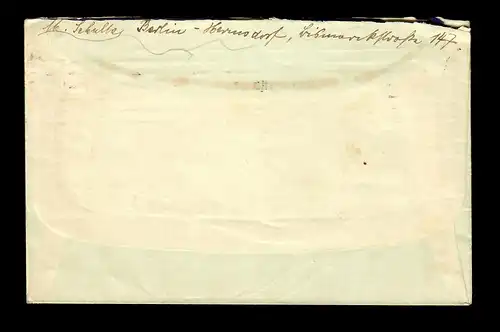 Schultz, Berlin - Hermsdorf, Bismarckstraße 147.